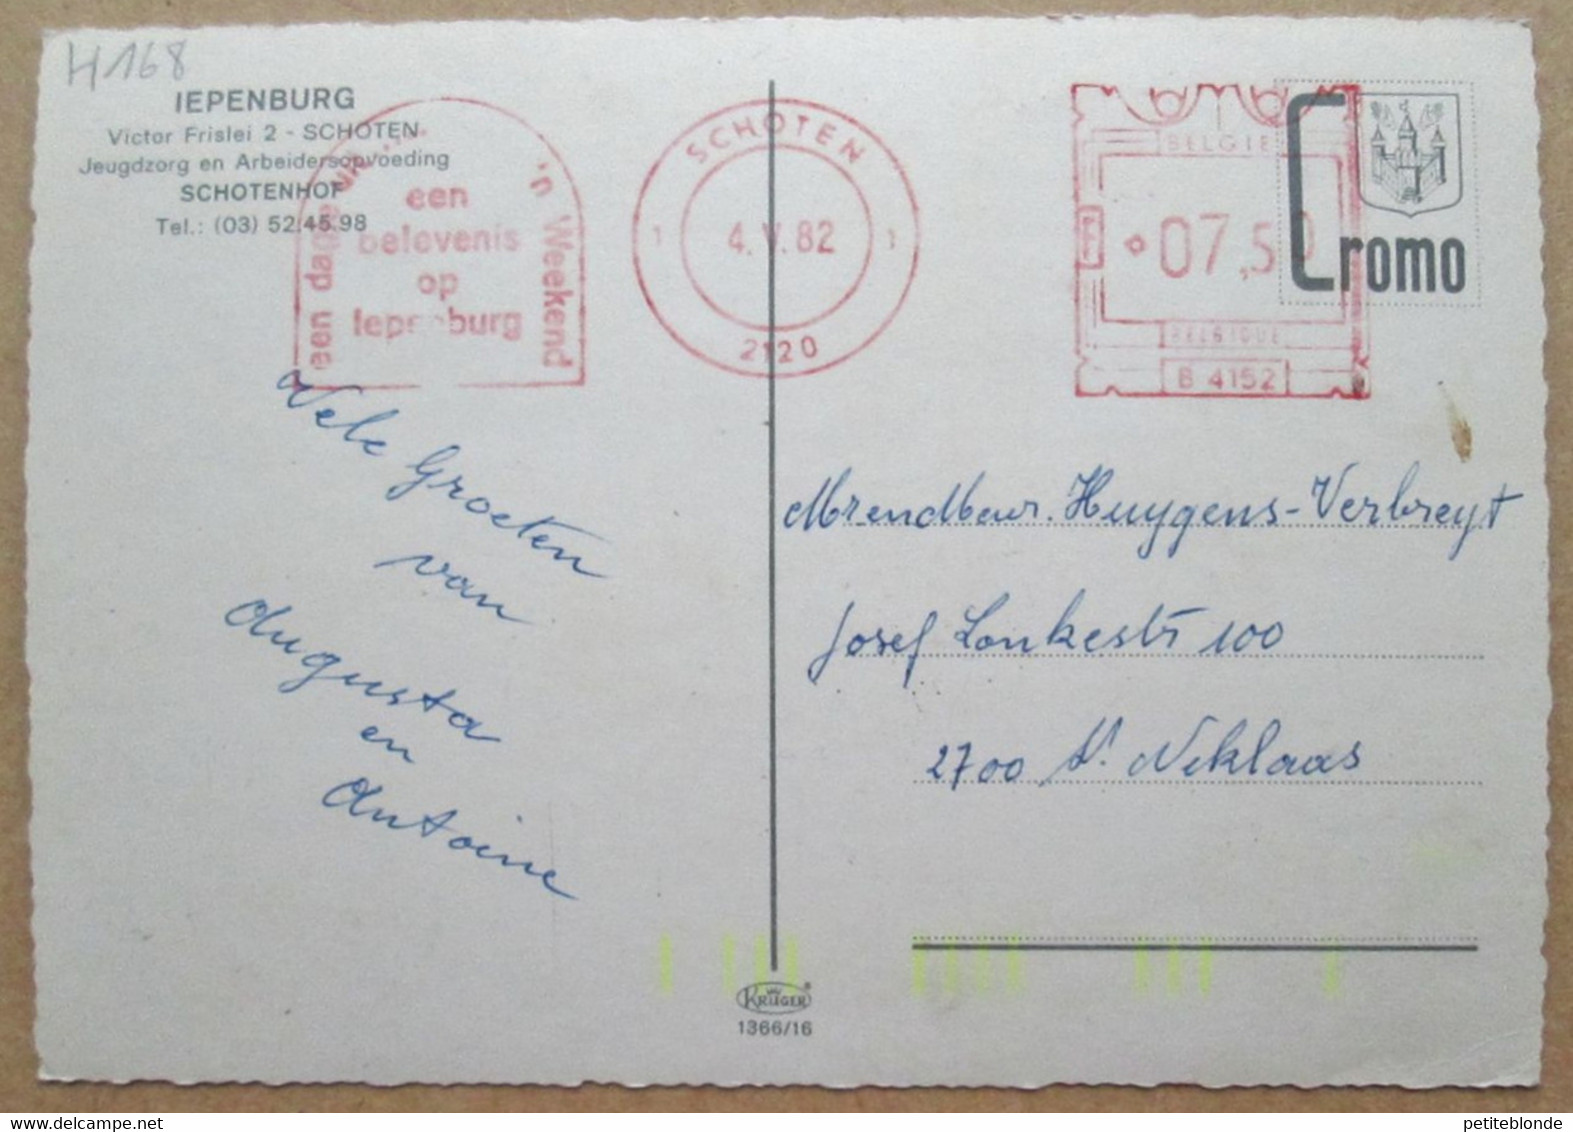 H168
IEPENBURG
Victor Frislei 2 - SCHOTEN
Jeugdzorg en Arbeidersopvoeding
SCHOTENHOF
Tel.: (03) 52.45.98
een dag
'n Weekend
een
belevenis
op
Iepenburg
SCHOTEN
1 4.V.82 1
2120
BELGIE
F 07,50
BELGIQUE
B 4152
Cromo
Vele Groeten
van
Augusta
en
Antoine
Huygens-Verbreyt
Josef 100
2700 St Niklaas
KRÜGER
1366/16
petiteblonde